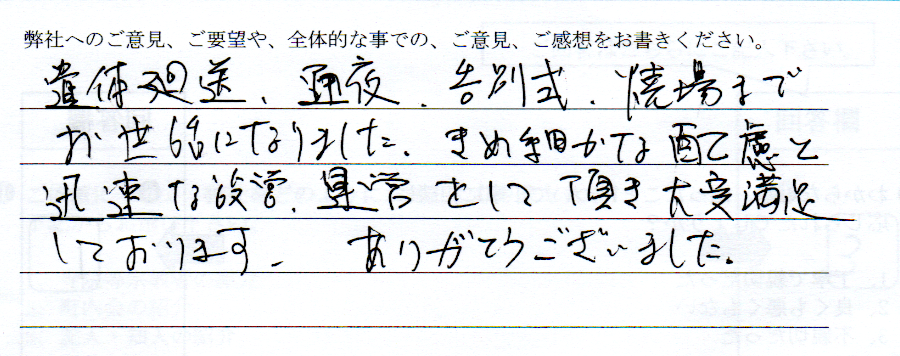 弊社へのご意見、ご要望や、全体的な事での、ご意見、ご感想をお書きください。
遺体回送、通夜、告別式、焼場まで
お世話になりました、きめ細かな配慮と
迅速な設営、運営をして頂き大変満足
しております。 ありがとうございました。